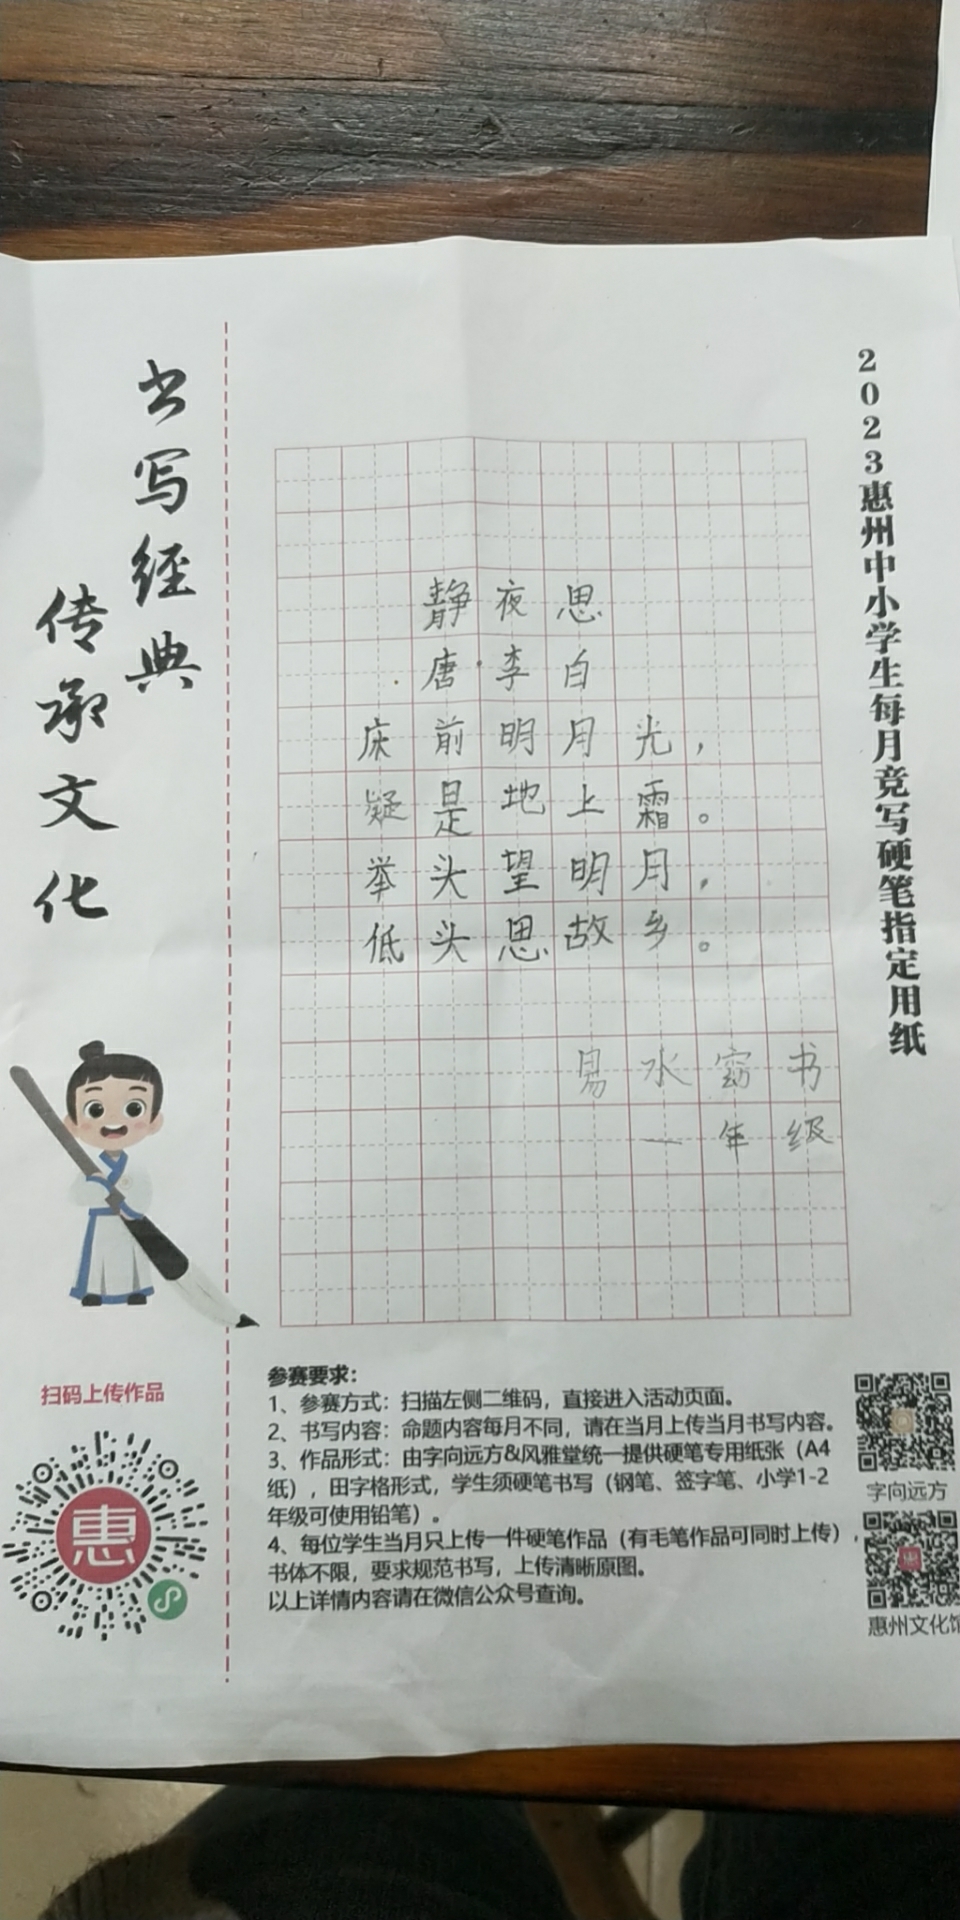 2023惠州中小学生每月竞写硬笔指定用纸
书写经典
传承文化
静夜思
唐·李白
床前明月光，
疑是地上霜。
举头望明月，
低头思故乡。
易水窈书
一年级
扫码上传作品
惠
参赛要求：
1、参赛方式：扫描左侧二维码，直接进入活动页面。
2、书写内容：命题内容每月不同，请在当月上传当月书写内容。
3、作品形式：由字向远方&风雅堂统一提供硬笔专用纸张（A4
纸），田字格形式，学生须硬笔书写（钢笔、签字笔、小学1-2
年级可使用铅笔）。
4、每位学生当月只上传一件硬笔作品（有毛笔作品可同时上传），
书体不限，要求规范书写，上传清晰原图。
以上详情内容请在微信公众号查询。
字向远方
惠州文化馆